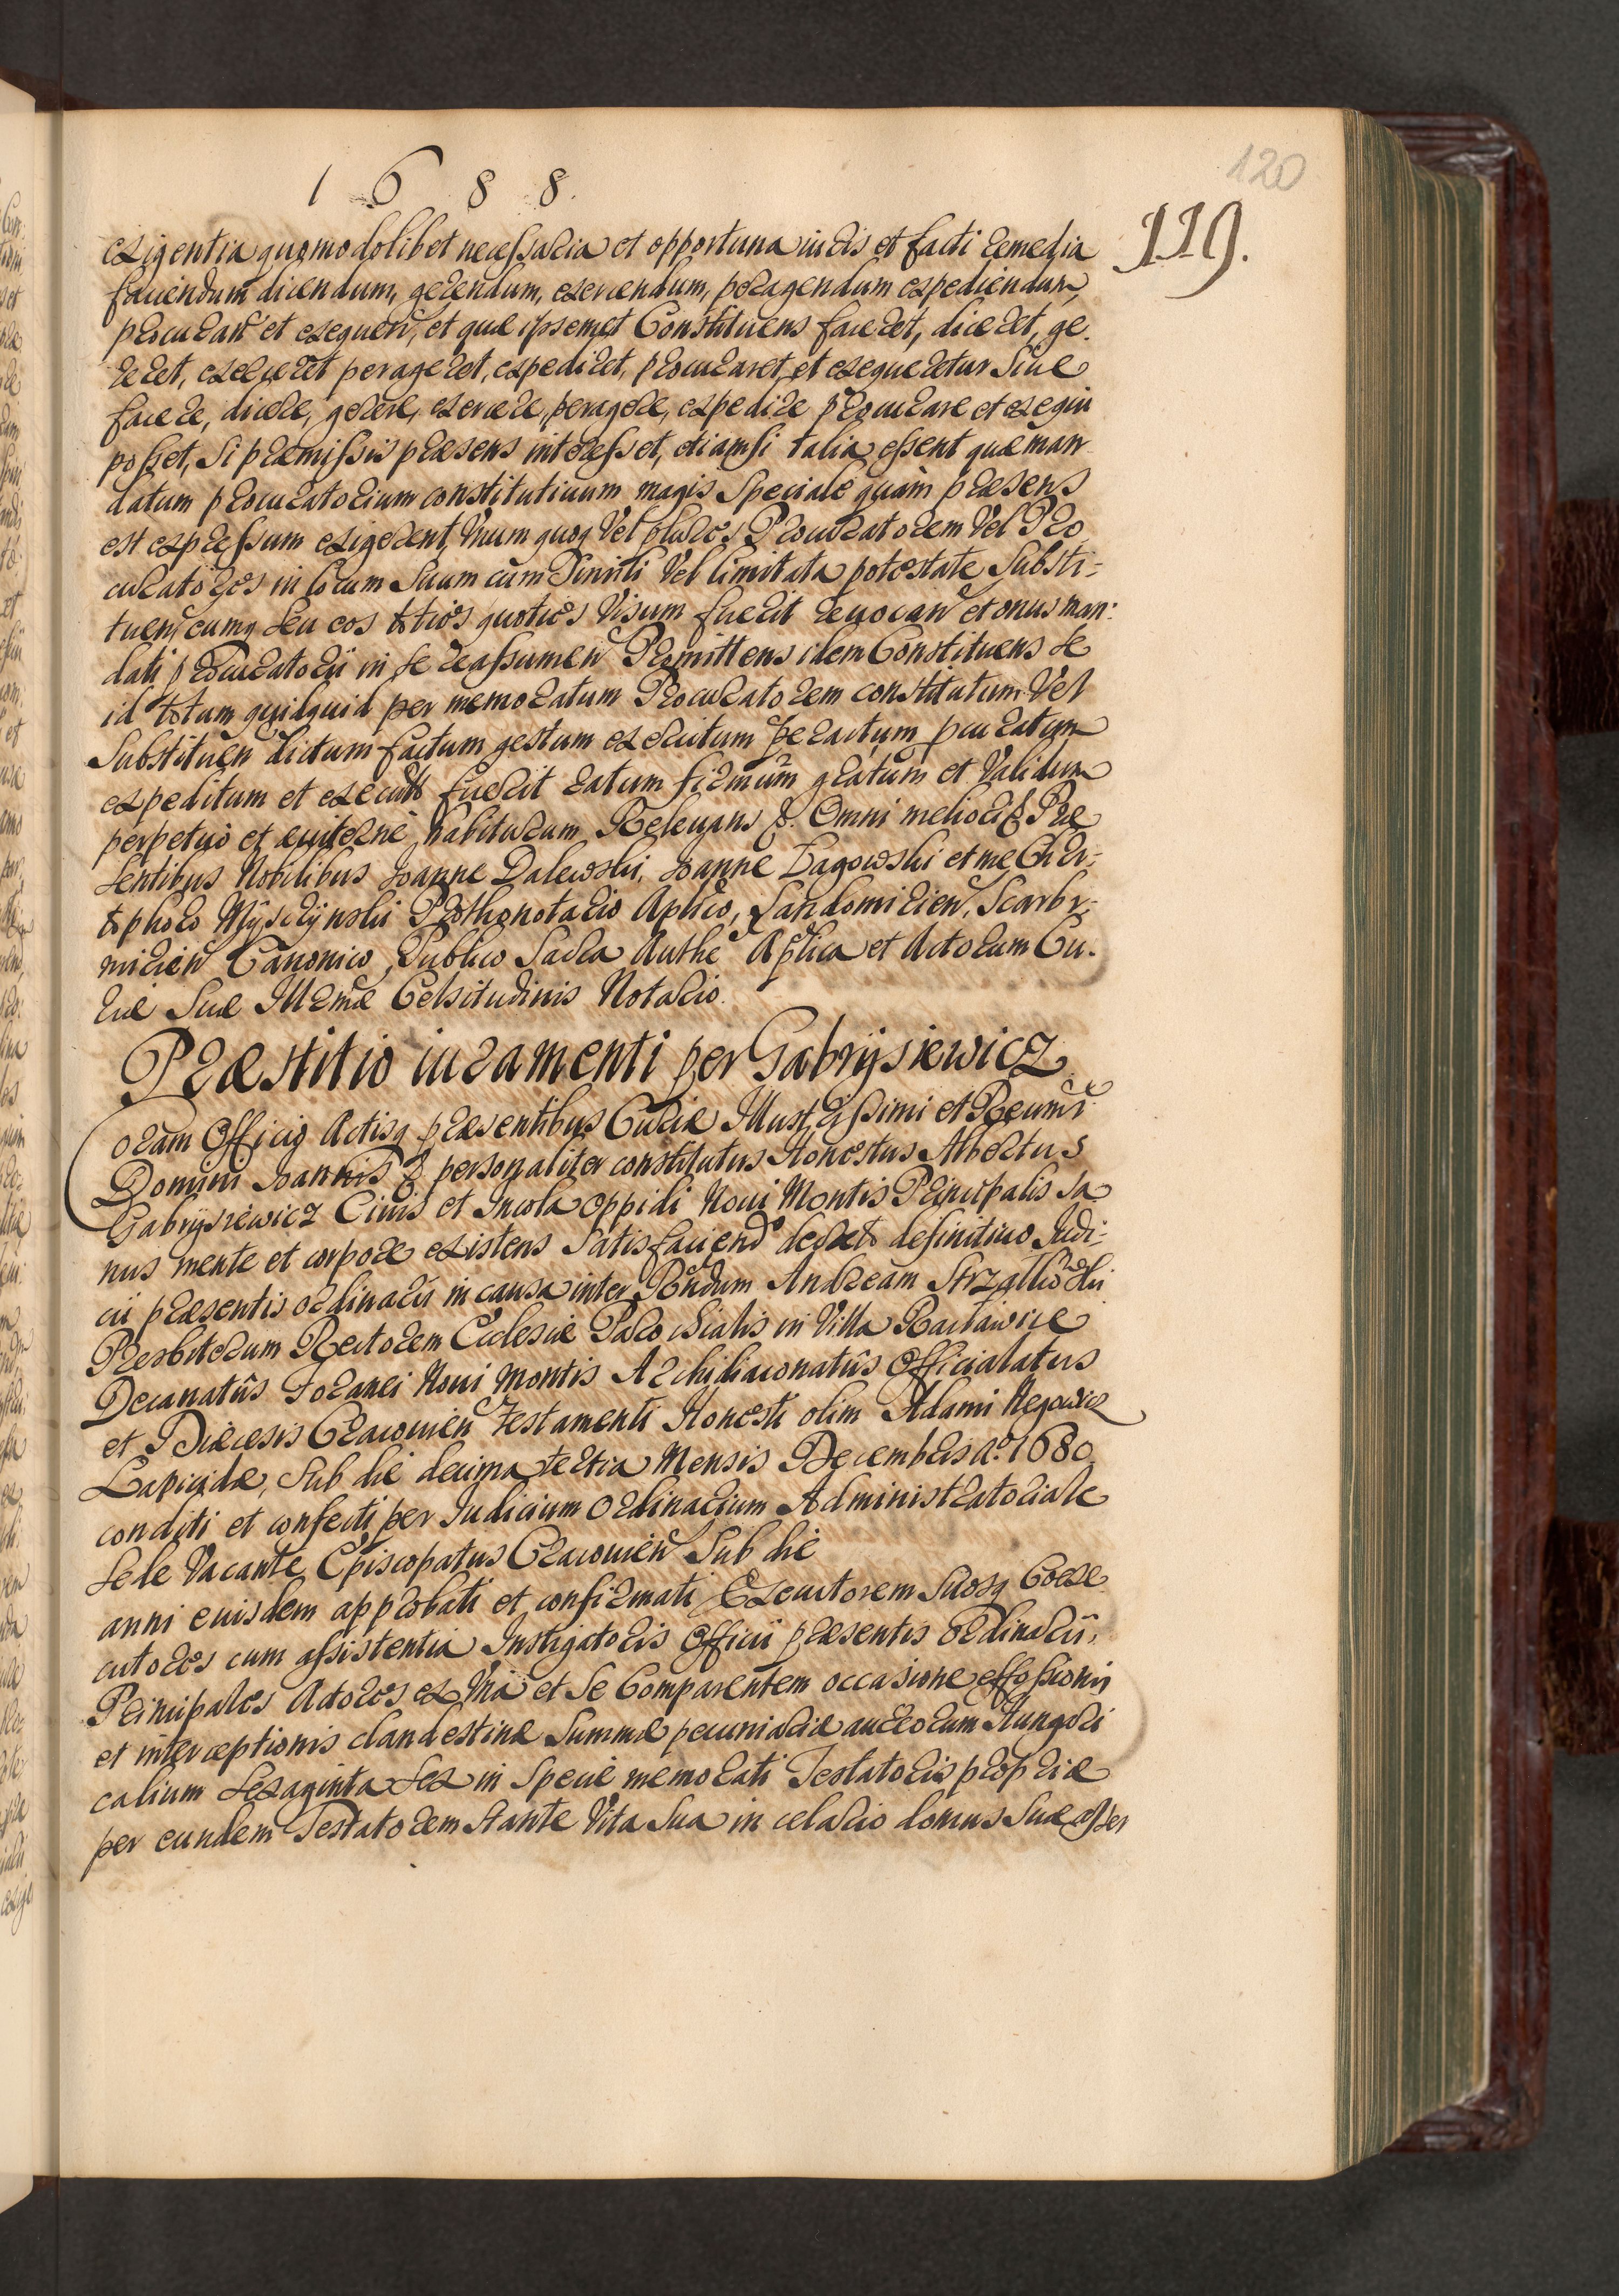 1688.
120
119.
exigentia quomodolibet necessaria et opportuna iuris et facti remedia
faciendum dicendum, gerendum, exercendum, peragendum expediendum,
procuran̄ et exequen̄, et quæ ipsemet Constituens faceret, diceret, ge
reret, exerceret perageret, expediret, procuraret, et exequeretur siue
facere, dicere, gerere, exercere, peragere, expedire procurare et exequi
posset, si præmissis præsens interesset, etiamsi talia essent quæ man
datum procuratorium constitutiuum magis speciale quàm præsens
est expressum exigerent, Vnum quoq Vel plures Procuratorem Vel Pro
curatores in locum suum cum simili Vel limitata potestate substi=
tuen̄ eumq seu eos toties quoties Visum fuerit reuocan̄ et onus man:
dati procuratorii in se reassumen̄ Promittens idem Constituens se
id totum quidquid per memoratum Procuratorem constitutum Vel
Substituen̄ dictum factum gestum exercitum peractum pcuratum
expeditum et executū fuerit ratum firmum gratum et Validum
perpetuò et æuiternè habiturum Releuans &. Omni meliori & Præ
sentibus Nobilibus Joanne Dalewski, Joanne Łagowski et me Chri-
stophoro Myszynski Prothonotario Aplico, Sandomirien̄, Scarbi=
mirien̄ Canonico, Publico Sacra Authe Aplica et Actorum Cu.
riæ Suæ Illrmæ Celsitudinis Notario.
Præstitio iuramenti per Gabryjsiewicz
Coram Officio Actisq præsentibus Curiæ Illustrissimi et Reuñdi
Domini Joannis & personaliter constitutus Honestus Albertus
Gabryjsiewicz Ciuis et Incola oppidi Noui Montis Principalis sa
nus mente et corpore existens satisfaciendo decreto definitiuo Judi:
cii præsentis ordinarii in causa inter Rñdum Andream Strzałkowski
Presbiterum Rectorem Ecclesiæ Parochialis in Villa Racławice
Decanatûs Foranei Noui Montis Archidiaconatûs Officialatus
et Diæcesis Cracouien̄ Testamenti Honesti olim Adami Regowicz
Lapicidæ, Sub die decima tertia Mensis Decembris Ao. 1680
conditi et confecti per Judicium Ordinarium Administratoriale
Sede Vacante Episcopatus Cracouien̄ Sub die
anni eiusdem approbati et confirmati Executorem Suosq Coexe
cutores cum assistentia Instigatoris Officii præsentis Ordinarii,
Principales Actores ex Vna et se Comparentem occasione effossionis
et interceptionis clandestinæ Summæ pecuniariæ aureorum Hungari
calium Sexaginta Sex in specie memorati Testatoris propriæ
per eundem Testatorem stante Vita sua in celario domus suæ asser